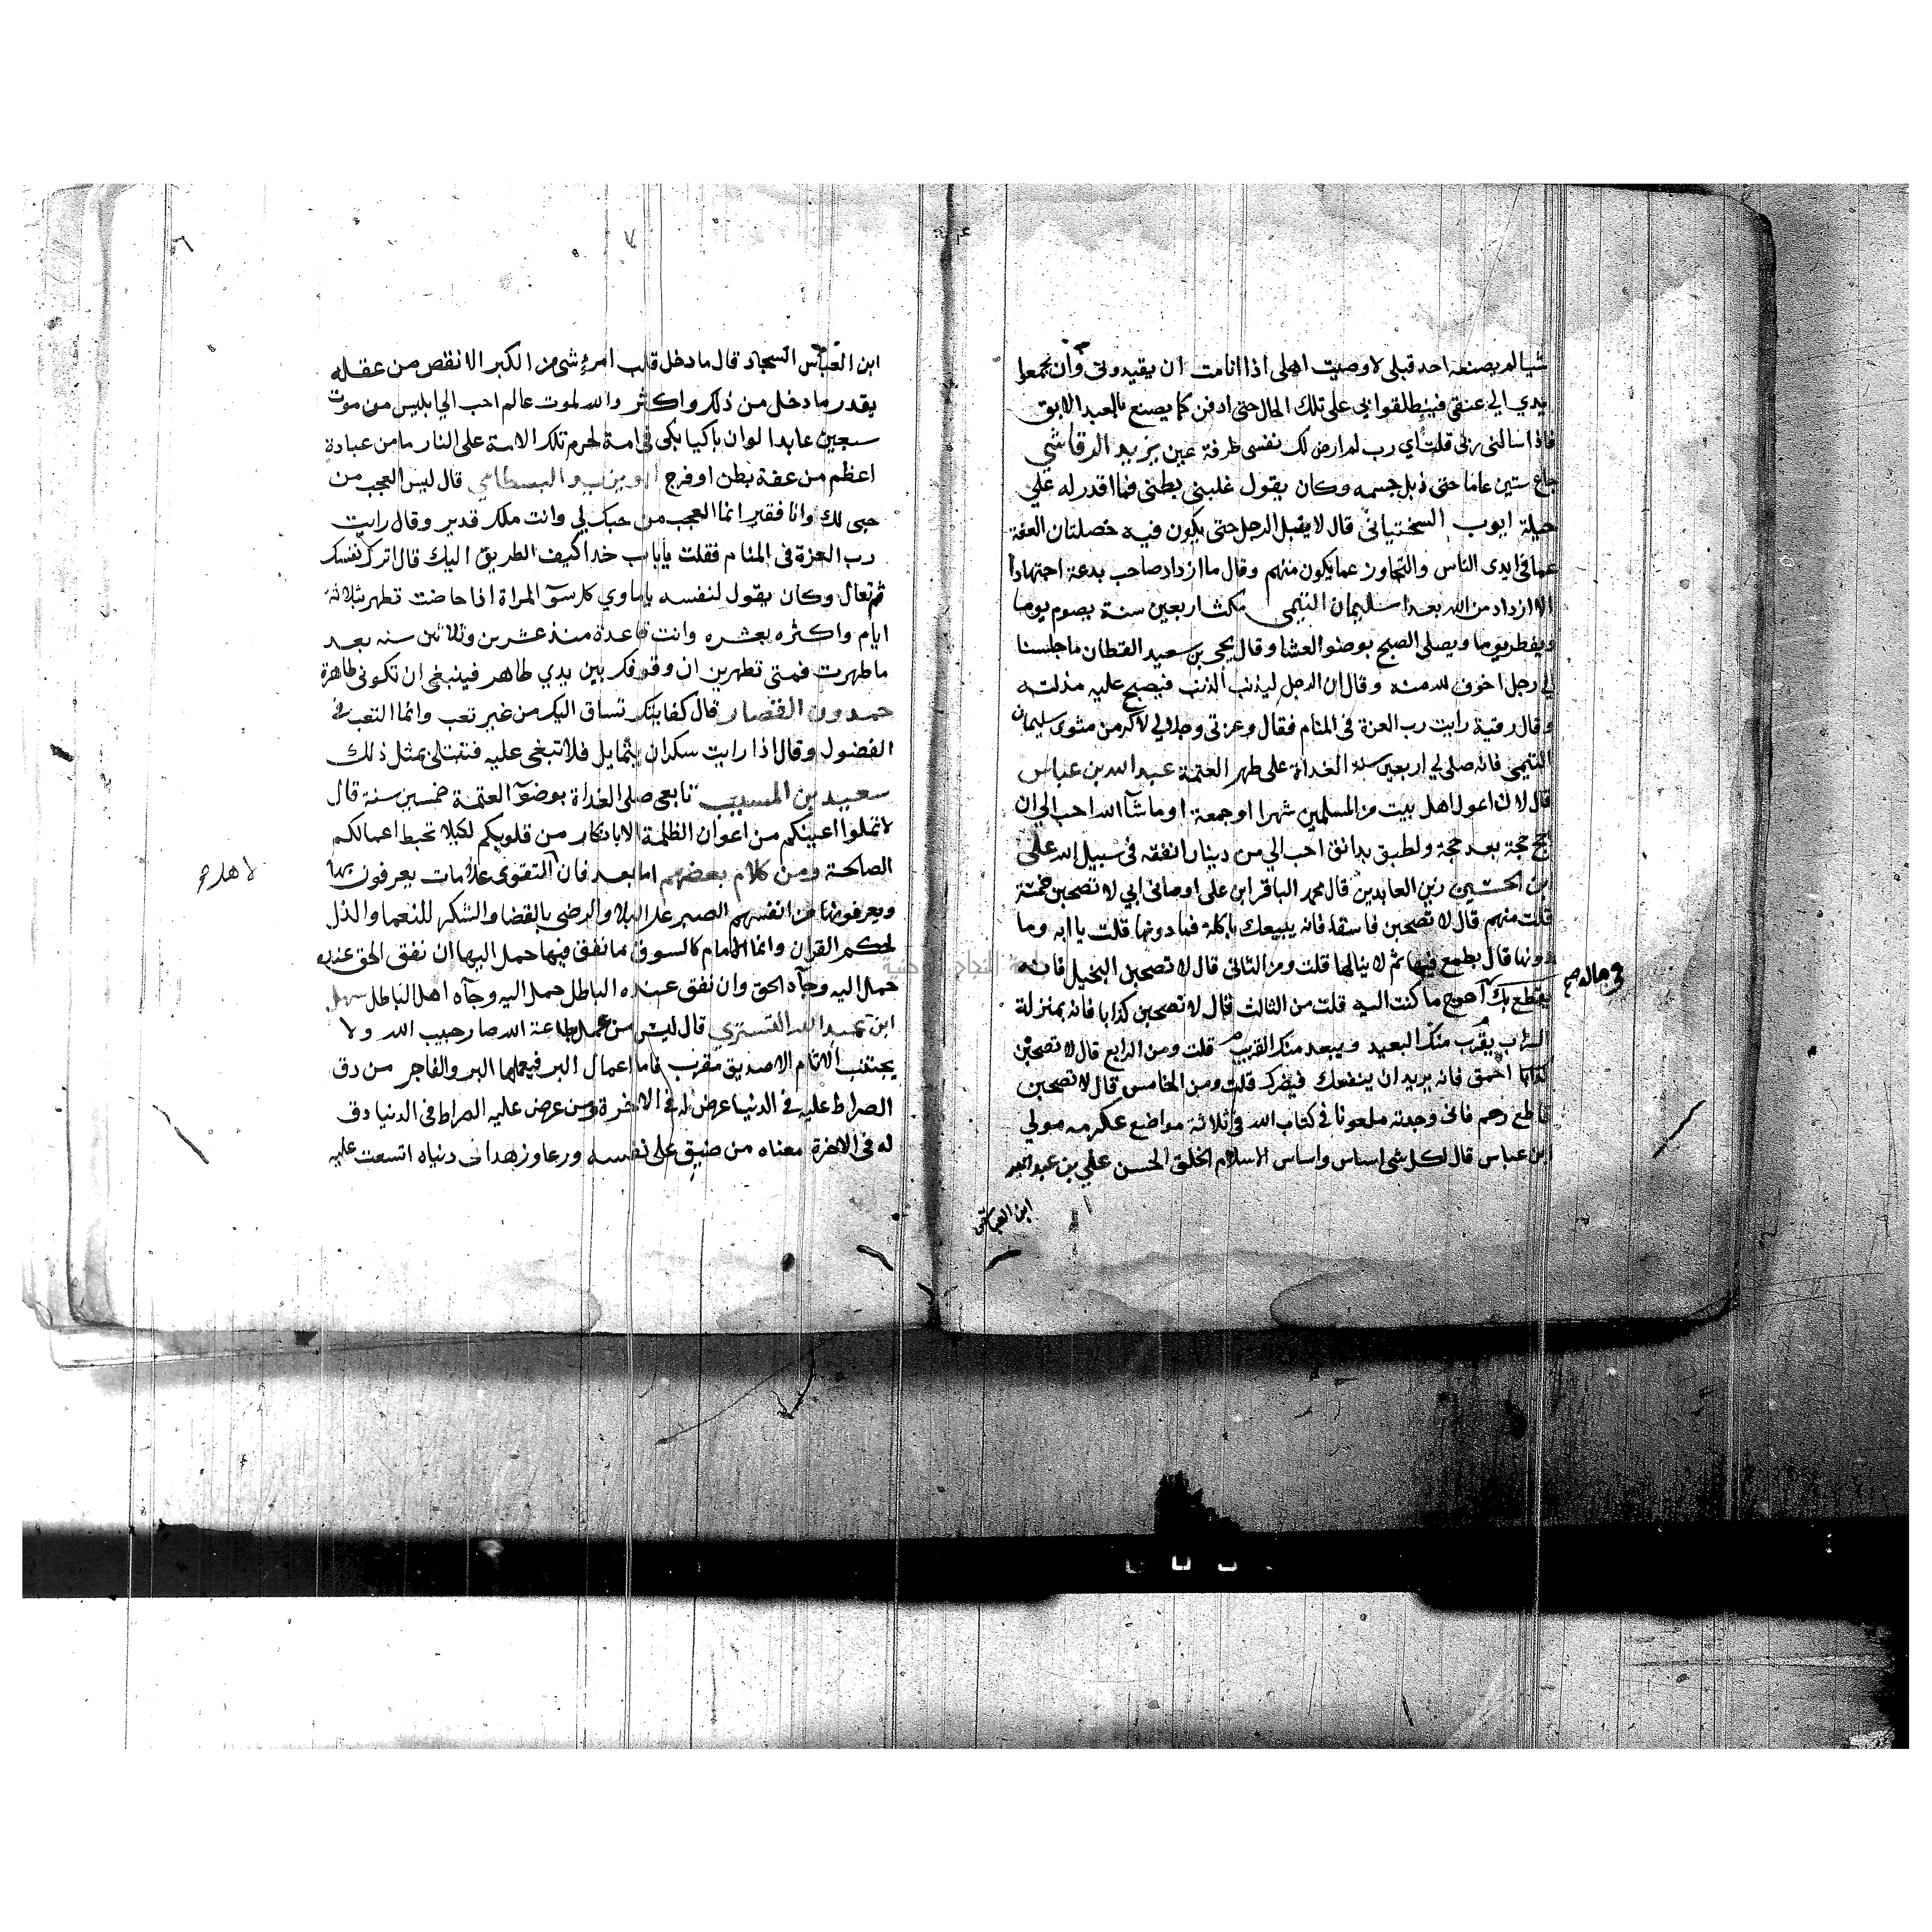 شيا لم يصنعه احد قبلي لاوصيت اهلي اذا انا مت ان يقيدوني وان يجمعوا
يدي الي عنقي فينطلقوا بي على تلك الحال حتى ادفن كما يصنع بالعبد الابق
فاذا سالني ربي قلت اي رب لم ارض لك نفسي طرفة عين يزيد الرقاشي
جاع ستين عاما حتى ذبل جسمه وكان يقول غلبني بطني فما اقدر له علي
حيلة ايوب السختياني قال لا يقبل الرجل حتى يكون فيه خصلتان العفة
عما في ايدي الناس والتجاوز عما يكون منهم وقال ما ازداد صاحب بدعة اجتهادا
الا ازداد من الله بعدا سليمان التيمي مكث اربعين سنة يصوم يوما
ويفطر يوما ويصلي الصبح بوضو العشا وقال يحيى بن سعيد القطان ما جلسنا
الي رجل اخوف لله منه وقال ان الرجل ليذنب الذنب فيصبح عليه مذلته
وقال رقبة رايت رب العزة في المنام فقال وعزتي وجلالي لاكرمن مثوى سليمان
التيمي فانه صلى لي اربعين سنة الغداة على طهر العتمة عبد الله بن عباس
قال لان اعول اهل بيت من المسلمين شهرا او جمعة او ما شآ الله احب الي ان
حج حجة بعد حجة ولطبق بدانق احب الي من دينار انفقه في سبيل الله على
بن الحسين زين العابدين قال محمد الباقر ابن علي اوصاني ابي لا تصحبن خمسة
قلت منهم قال لا تصحبن فاسقا فانه يبيعك باكلة فما دونها قلت يا ابه وما
دونها قال يطمع فيها ثم لا ينالها قلت ومن الثاني قال لا تصحبن البخيل فانه
يقطع بك احوج ما كنت اليه قلت من الثالث قال لا تصحبن كذابا فانه بمنزلة
في ماله صح
السراب يقرب منك البعيد ويبعد منك القريب قلت ومن الرابع قال لا تصحبن
احمق فانه يريد ان ينفعك فيضرك قلت ومن الخامس قال لا تصحبن
قاطع رحم فاني وجدته ملعونا في كتاب الله في ثلاثة مواضع عكرمه مولي
ابن عباس قال لكل شي اساس واساس الاسلام الخلق الحسن علي بن عبد الله
ابن العباس
ابن العباس السجاد قال ما دخل قلب امرء شي من الكبر الا نقص من عقله
بقدر ما دخل من ذلك واكثر والله لموت عالم احب الي ابليس من موت
سبعين عابدا لو ان باكيا بكى في امة لحرم تلك الامة على النار ما من عبادة
اعظم من عفة بطن او فرج ابو يزيد البسطامي قال ليس العجب من
حبي لك وانا فقير انما العجب من حبك لي وانت ملك قدير وقال رايت
رب العزة في المنام فقلت يا خدا كيف الطريق اليك قال اترك نفسك
ثم تعال وكان يقول لنفسه يا ماوي كل سوٓ المراة اذا حاضت تطهر بثلاثة
ايام واكثره بعشره وانت قاعدة منذ عشرين وثلاثين سنه بعد
ما طهرت فمتى تطهرين ان وقوفك بين يدي طاهر فينبغي ان تكوني طاهرة
حمدون القصار قال كفايتك تساق اليك من غير تعب وانما التعب في
الفضول وقال اذا رايت سكران يتمايل فلا تبغي عليه فتبتلى بمثل ذلك
سعيد بن المسيب تابعي صلى الغداة بوضوٓ العتمة خمسين سنة قال
لا تملوا اعينكم من اعوان الظلمة الا بانكار من قلوبكم لكيلا تحبط اعمالكم
الصالحة ومن كلام بعضهم اما بعد فان التقوى علامات يعرفون بها
لاهل صح
ويعرفونها من انفسهم الصبر على البلا والرضى بالقضا والشكر للنعما والذل
لحكم القران وانما الامام كالسوق ما نفق فيها حمل اليها ان نفق الحق عنده
حمل اليه وجآه الحق وان نفق عنده الباطل حمل اليه وجآه اهل الباطل سهل
ابن عبد الله التستري قال ليس من عمل بطاعة الله صار حبيب الله ولا
يجتنب الاثام الا صديق مقرب فاما اعمال البر فيعملها البر والفاجر من دق
الصراط عليه في الدنيا عرض له في الاخرة ومن عرض عليه الصراط في الدنيا دق
له في الاخرة معناه من ضيق على نفسه ورعا وزهدا في دنياه اتسعت عليه